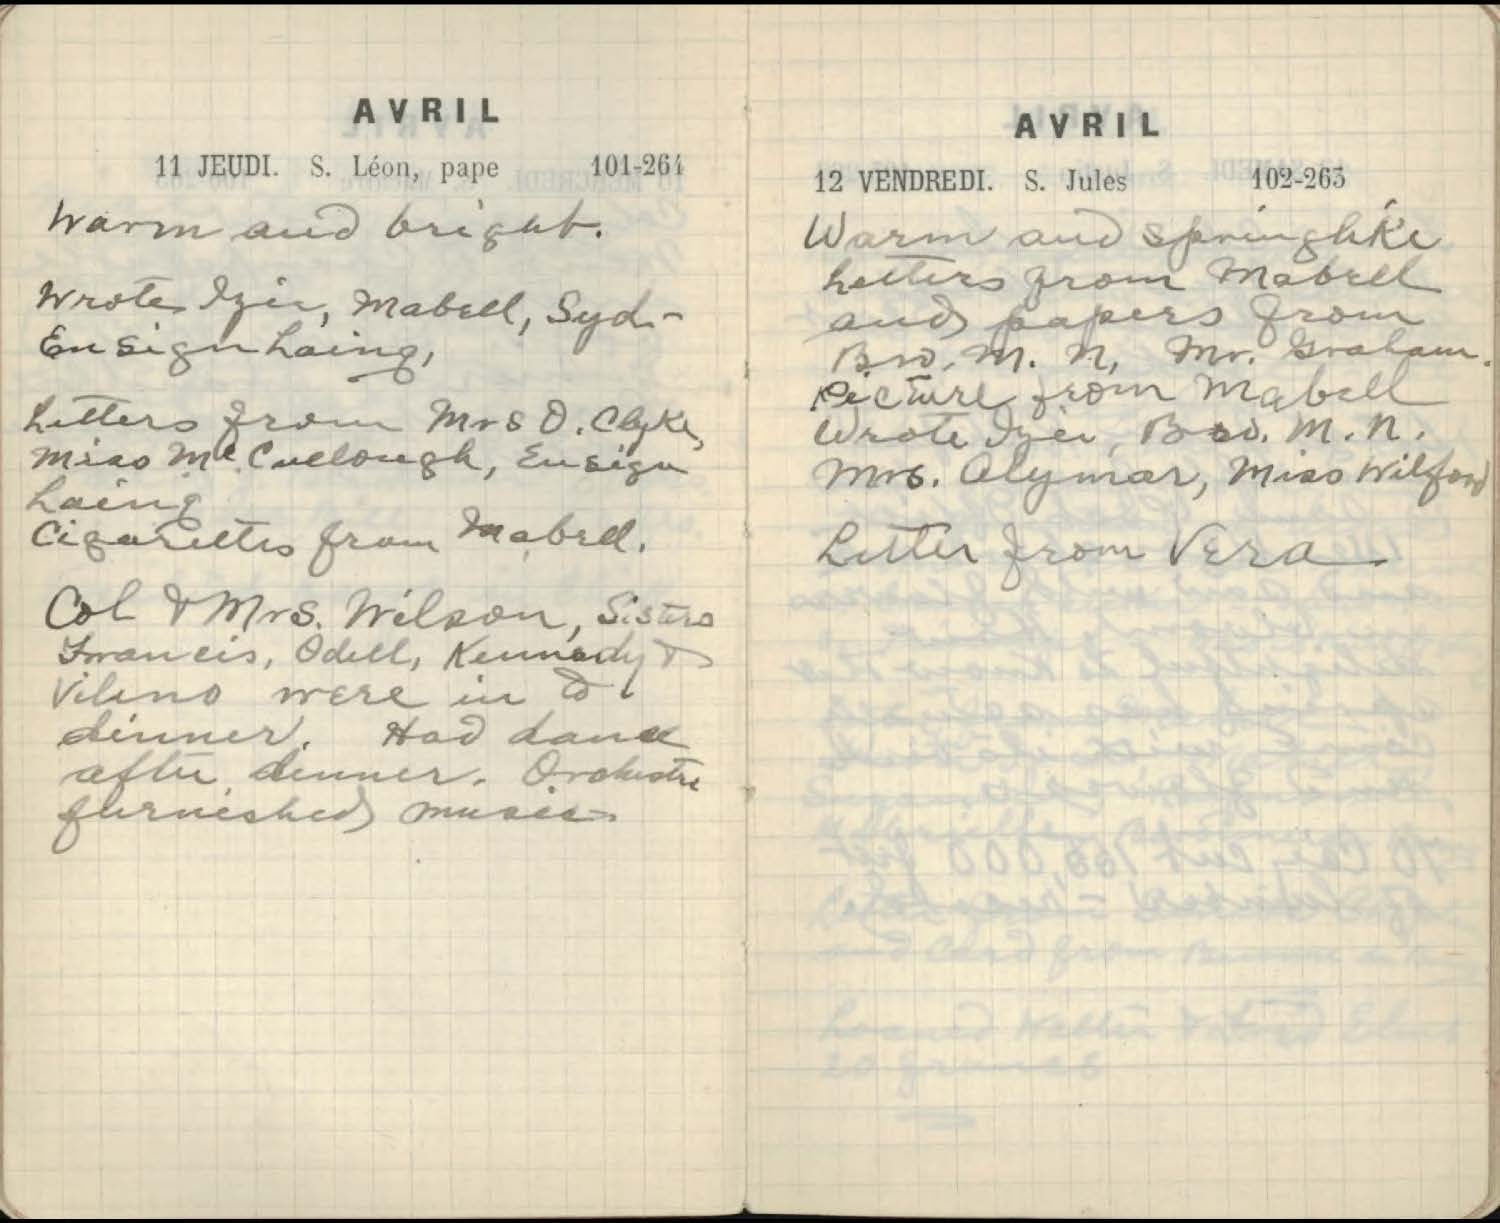 AVRIL
11 JEUDI. S. Léon, pape 101-264
Warm and bright.
Wrote Izie, Mabell, Syd.-
Ensign Laing,
Letters from Mrs O. Clyke,
Miss McCullough, Ensign
Laing
Cigarettes from Mabell.
Col & Mrs. Wilson, Sisters
Francis, Odell, Kennedy &
were in to
dinner. Had dance
after dinner. Orchestra
furnished music.
AVRIL
12 VENDREDI. S. Jules 102-263
Warm and springlike
Letters from Mabell
and papers from
Bro. M. N, Mr. Graham.
Picture from Mabell
Wrote Izie, Bro. M. N.
Mrs. Alymar, Miss Wilford
Letter from Vera.